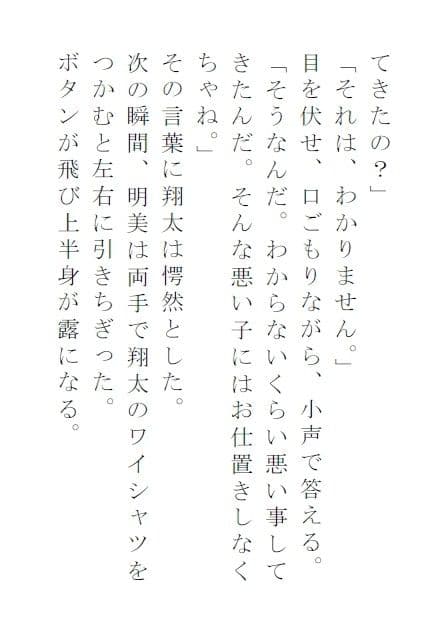 てきたの？」
「それは、わかりません。」
目を伏せ、口ごもりながら、小声で答える。
「そうなんだ。わからないくらい悪い事して
きたんだ。そんな悪い子にはお仕置きしなく
ちゃね。」
その言葉に翔太は愕然とした。
次の瞬間、明美は両手で翔太のワイシャツを
つかむと左右に引きちぎった。
ボタンが飛び上半身が露になる。